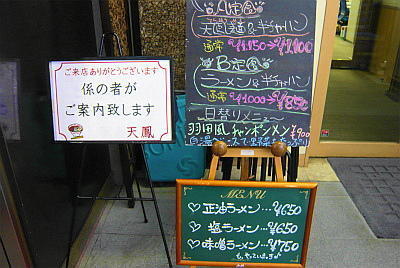 ご来店ありがとうございます
係の者が
ご案内致します
天鳳
A定食
天鳳麺&半チャーハン
通常 ¥1,150→¥1,100
B定食
ラーメン&半チャーハン
通常 ¥1,000→¥850
日替りメニュー
羽田風チャンポンメン ¥900
MENU
♡正油ラーメン…¥650
♡塩ラーメン…¥650
♡味噌ラーメン…¥750